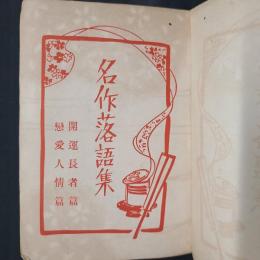 名作落語集
開運長者篇
戀愛人情篇